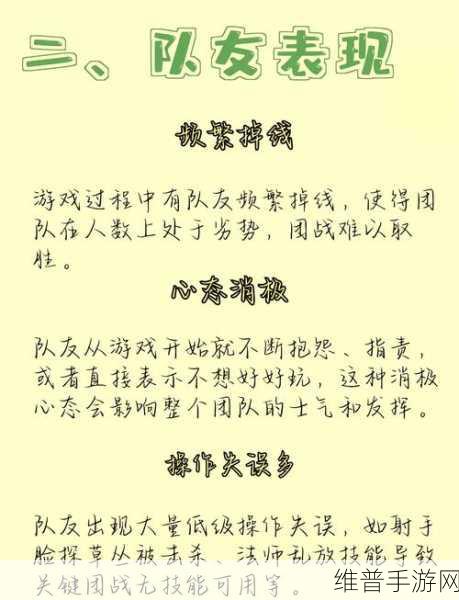 二、队友表现
频繁掉线
游戏过程中有队友频繁掉线，使得团
队在人数上处于劣势，团战难以取
胜。
心态消极
队友从游戏开始就不断抱怨、指责，
或者直接表示不想好好玩，这种消极
心态会影响整个团队的士气和发挥。
操作失误多
队友出现大量低级操作失误，如射手
脸探草丛被击杀、法师乱放技能导致
关键团战无技能可用等。
维普手游网